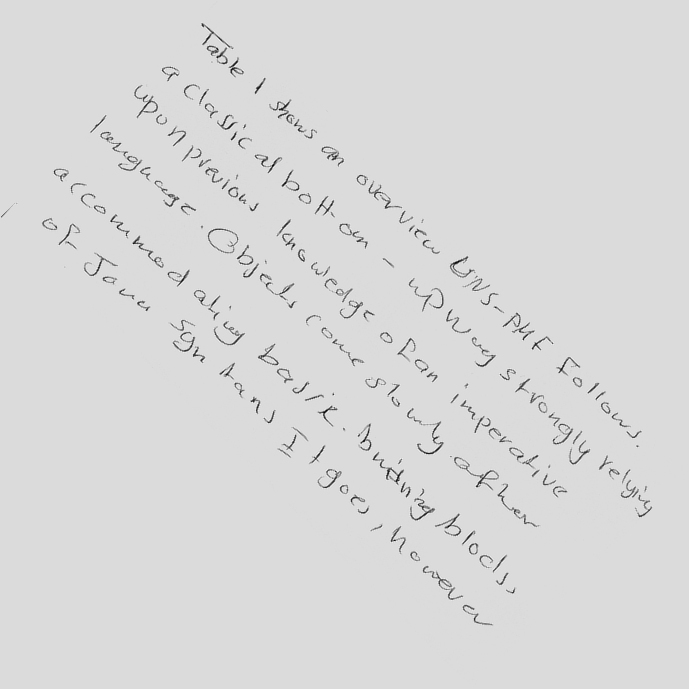 Table 1 shows an overview UNS-PMF follows.
a classical bottom-up way strongly relying
upon previous knowledge of an imperative
language. Objects come slowly after
accommodating basic. building blocks,
of Java syntans It goes, however